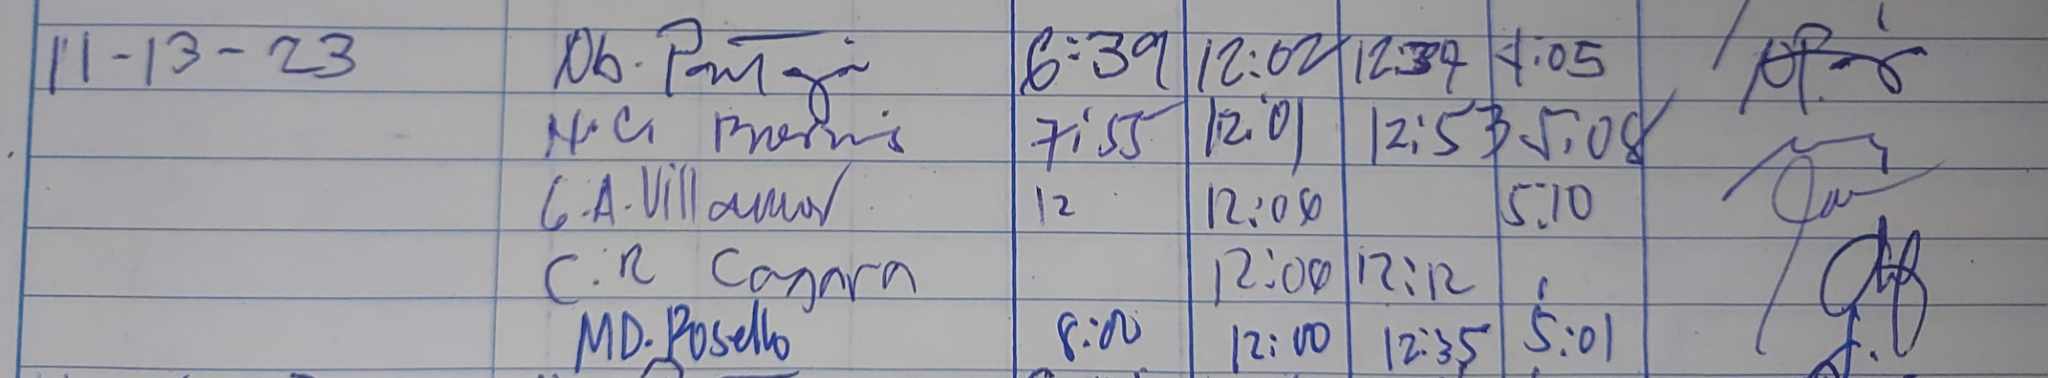 11-13-23 6:39 12:02 12:34 4:05
N.G 7:55 12:01 12:53 5:08
G.A. Villamor 12 12:00 5:10
C.R Cagara 12:00 12:12
MD. Rosello 8:00 12:00 12:35 5:01